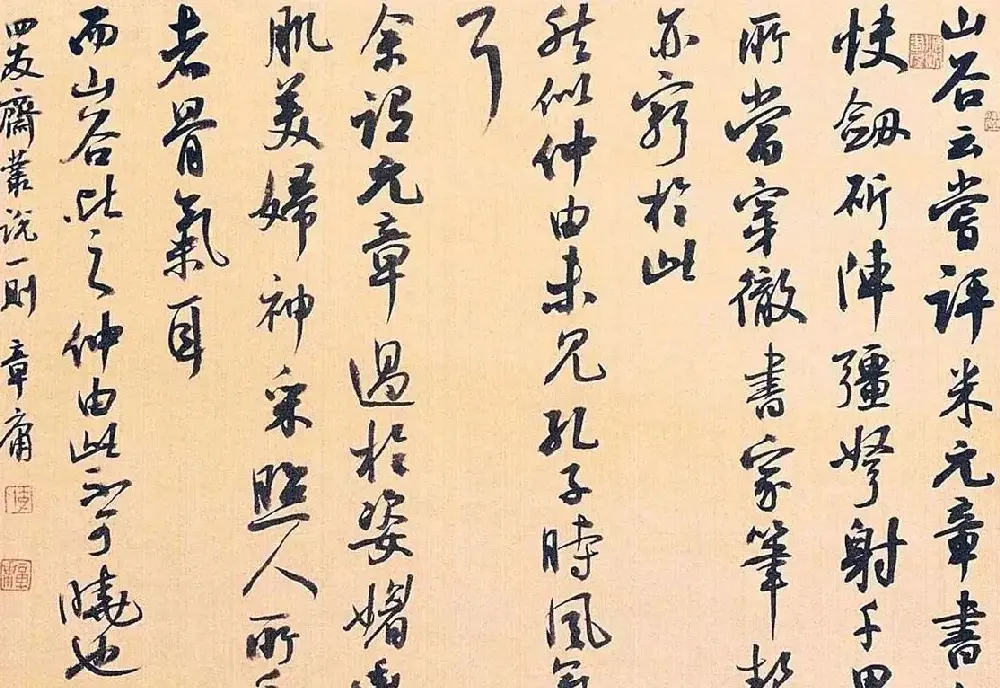 山谷云嘗評米元章書
快劒斫陣彊弩射千里
所當穿徹書家筆勢
亦窮於此
然似仲由未見孔子時風氣
耳
余謂元章過於姿媚
肌美婦神采照人所
者骨氣耳
而山谷比之仲由此不可曉也
四友齋叢説一則 章庸